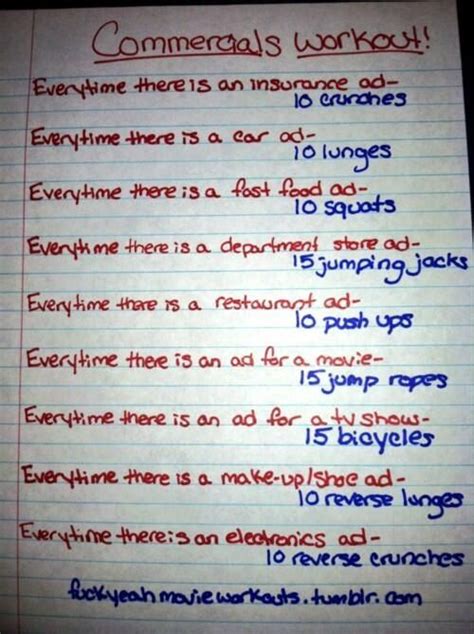 Commercials Workout!
Everytime there is an insurance ad-
10 crunches
Everytime there is a car ad-
10 lunges
Everytime there is a fast food ad-
10 squats
Everytime there is a department store ad-
15 jumping jacks
Everytime there is a restaurant ad-
10 push ups
Everytime there is an ad for a movie-
15 jump ropes
Everytime there is an ad for a tv show-
15 bicycles
Everytime there is a make-up/shoe ad-
10 reverse lunges
Everytime there is an electronics ad-
10 reverse crunches
fuckyeahmovieworkouts.tumblr.com